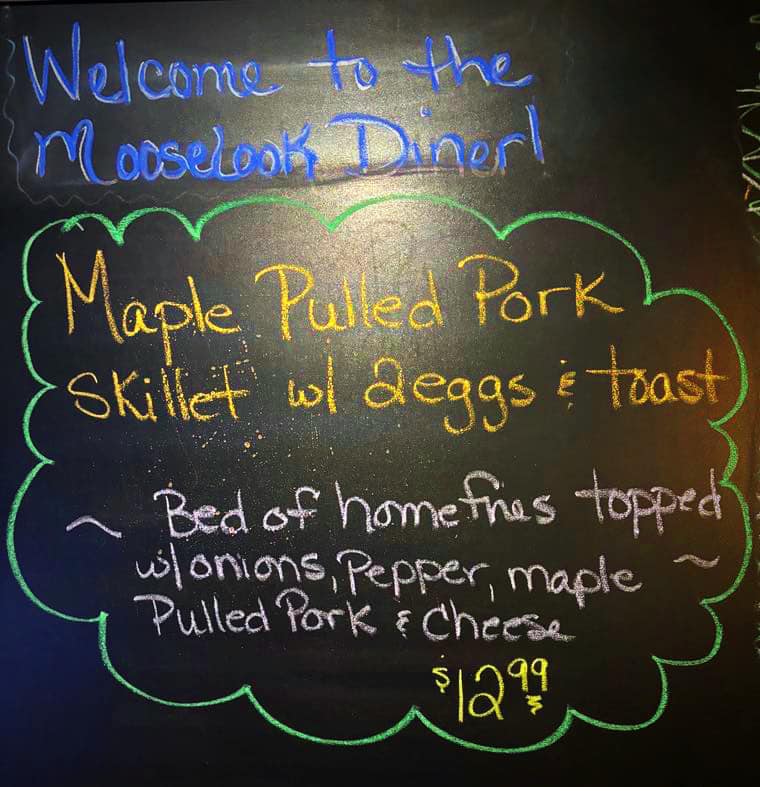 Welcome to the
Mooselook Diner!
Maple Pulled Pork
Skillet w/ 2eggs & toast
~ Bed of homefries topped
w/onions, Pepper, maple ~
Pulled Pork & Cheese
$12.99